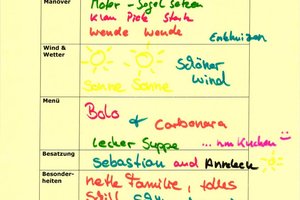 Manöver
Motor - Segel setzen
Klau Piek Stark
Wende Wende
Enkhuizen
Wind &
Wetter
Sonne Sonne
Schöner
Wind
Menü
Bolo
&
Carbonara
lecker Suppe ... hm Kuchen
Besatzung
Sebastian and
Besonder-
heiten
nette Familie, tolles
Schiff